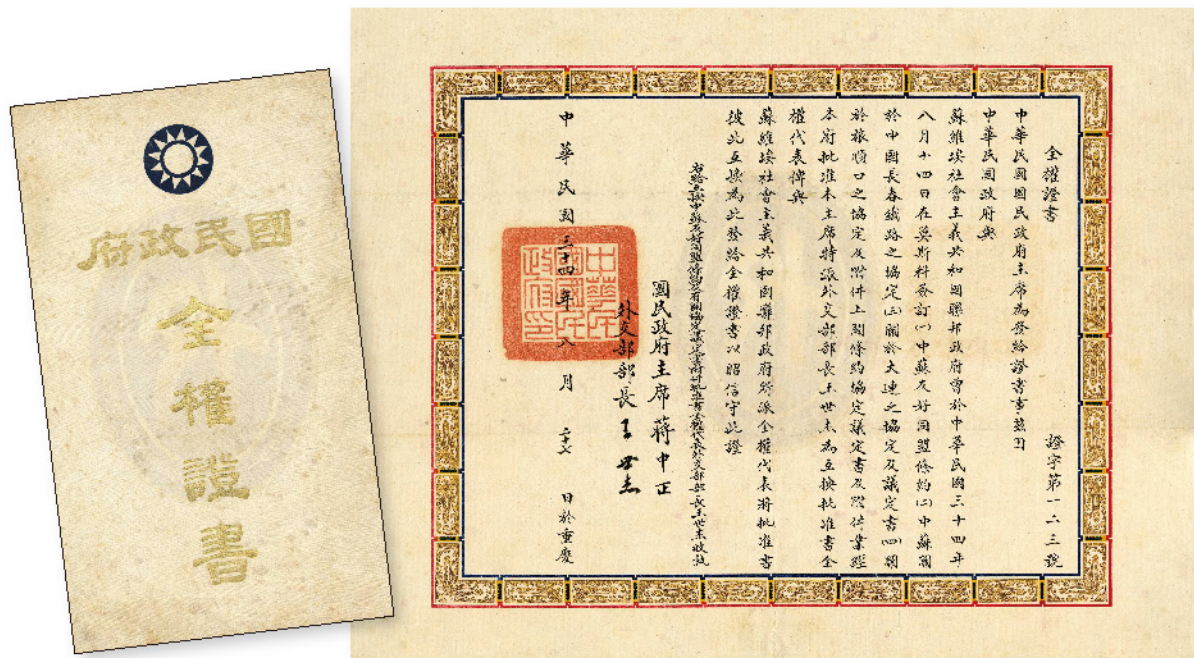 國民政府
全權證書
全權證書
證字第一二三號
中華民國國民政府主席為發給證書事茲因
中華民國政府與
蘇維埃社會主義共和國聯邦政府曾於中華民國三十四年
八月十四日在莫斯科簽訂(一)中蘇友好同盟條約(二)中蘇關
於中國長春鐵路之協定(三)關於大連之協定及議定書(四)關
於旅順口之協定及附件上開條約協定議定書及附件業經
本府批准本主席特派外交部部長王世杰為互換批准書全
權代表俾與
蘇維埃社會主義共和國聯邦政府所派全權代表將批准書
彼此互換為此發給全權證書以昭信守此證
右給互換中蘇友好同盟條約及有關協定議定書附件批准書全權代表外交部部長王世杰收執
國民政府主席 蔣中正
外交部部長 王世杰
中華民國國民政府印
中華民國三十四年八月二十七日於重慶